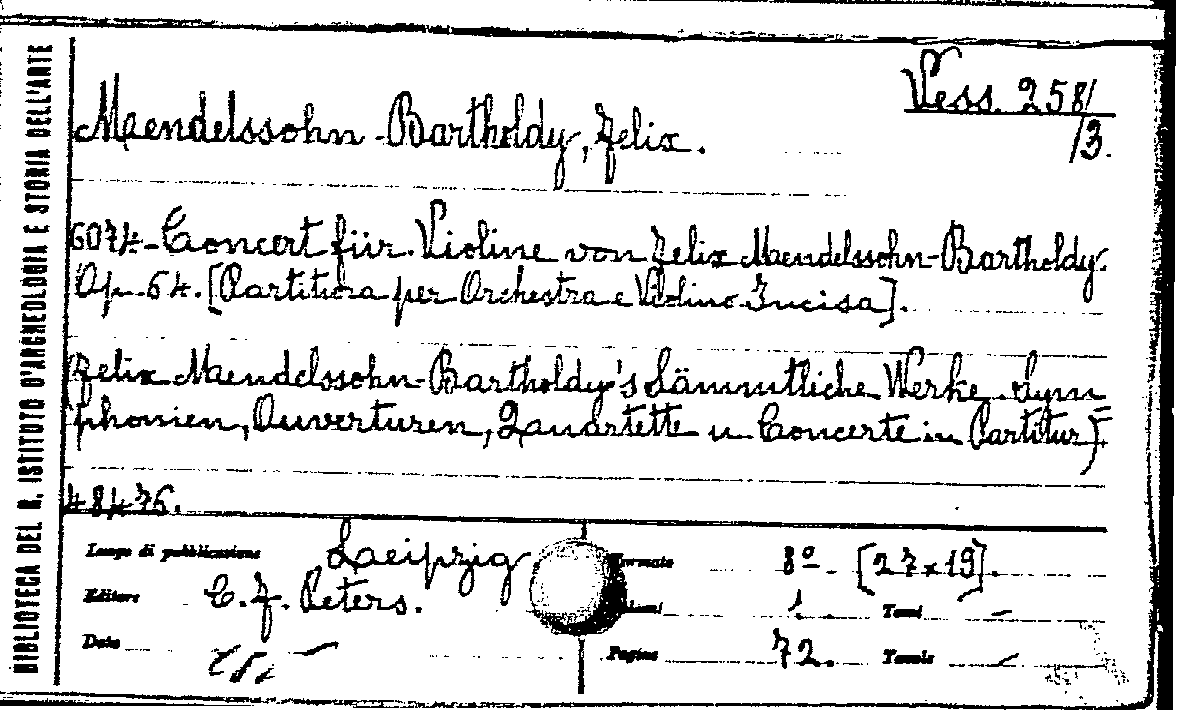 BIBLIOTECA DEL R. ISTITUTO D'ARCHEOLOGIA E STORIA DELL'ARTE
Vess. 258/
/3.
Mendelssohn-Bartholdy, Felix.
6074-Concert für Violine von Felix Mendelssohn-Bartholdy.
Op. 64. [Partitura per Orchestra e Violino. Incisa].
Felix Mendelssohn-Bartholdy's Sämmtliche Werke. Sym
phonien, Ouverturen, Quartette u Concerte in Partitur)
48476.
Luogo di pubblicazione Leipzig
Editore C. F. Peters.
Data
Formato 8º. [27x19].
1. Tomi —
Pagine 72. Tavole —